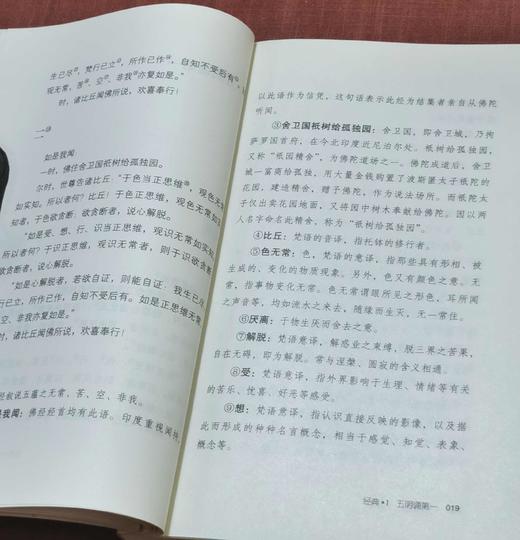 生已尽，梵行已立，所作已作，自知不受后有。
观无常，苦、空、非我亦复如是。”
时，诸比丘闻佛所说，欢喜奉行！
一二
如是我闻
一时，佛住舍卫国祇树给孤独园。
尔时，世尊告诸比丘：“于色当正思维，观色无常
如实知。所以者何？比丘！于色正思维，观色无常如
知者，于色欲贪断；欲贪断者，说心解脱。
“如是受、想、行、识当正思维，观识无常如实知。
所以者何？于识正思维，观识无常者，则于识欲贪断
者，说心解脱。
“如是心解脱者，若欲自证，则能自证：我生已
行已立，所作已作，自知不受后有。如是正思维无常
时，诸比丘闻佛所说，欢喜奉行！
经叙说五蕴之无常、苦、空、非我。
是我闻：佛经经首均有此语。印度重视闻持，
以此语作为信凭，这句话表示此经为结集者亲自从佛陀
听闻。
③舍卫国祇树给孤独园：舍卫国，即舍卫城，乃拘
萨罗国首府，在今北印度近尼泊尔处。祇树给孤独园，
又称“祇园精舍”，为佛陀道场之一。佛陀成道后，舍卫
城一富商给孤独，用大量金钱购置了波斯匿太子祇陀的
花园，建造精舍，赠予佛陀，作为说法场所。而祇陀太
子仅出卖花园地面，又将园中树木奉献给佛陀。因以两
人名字命名此精舍，称为“祇树给孤独园”。
④比丘：梵语的音译，指托钵的修行者。
⑤色无常：色，梵语的意译，指那些具有形相、被
生成的、变化的物质现象。另外，色又有颜色之意。无
常，指事物变化无常。色无常谓眼所见之形色，耳所闻
之声音等，均如流水之来去，随缘而生灭，无一常住。
⑥厌离：于物生厌而舍去之意。
⑦解脱：梵语意译，解惑业之束缚，脱三界之苦果，
自在无碍，即为解脱。常与涅槃、圆寂的含义相通。
⑧受：梵语意译，指外界影响于生理、情绪等有关
的苦乐、忧喜、好恶等感受。
⑨想：梵语意译，指认识直接反映的影像，以及据
此而形成的种种名言概念，相当于感觉、知觉、表象、
概念等。
经典·1 五阴诵第一 019